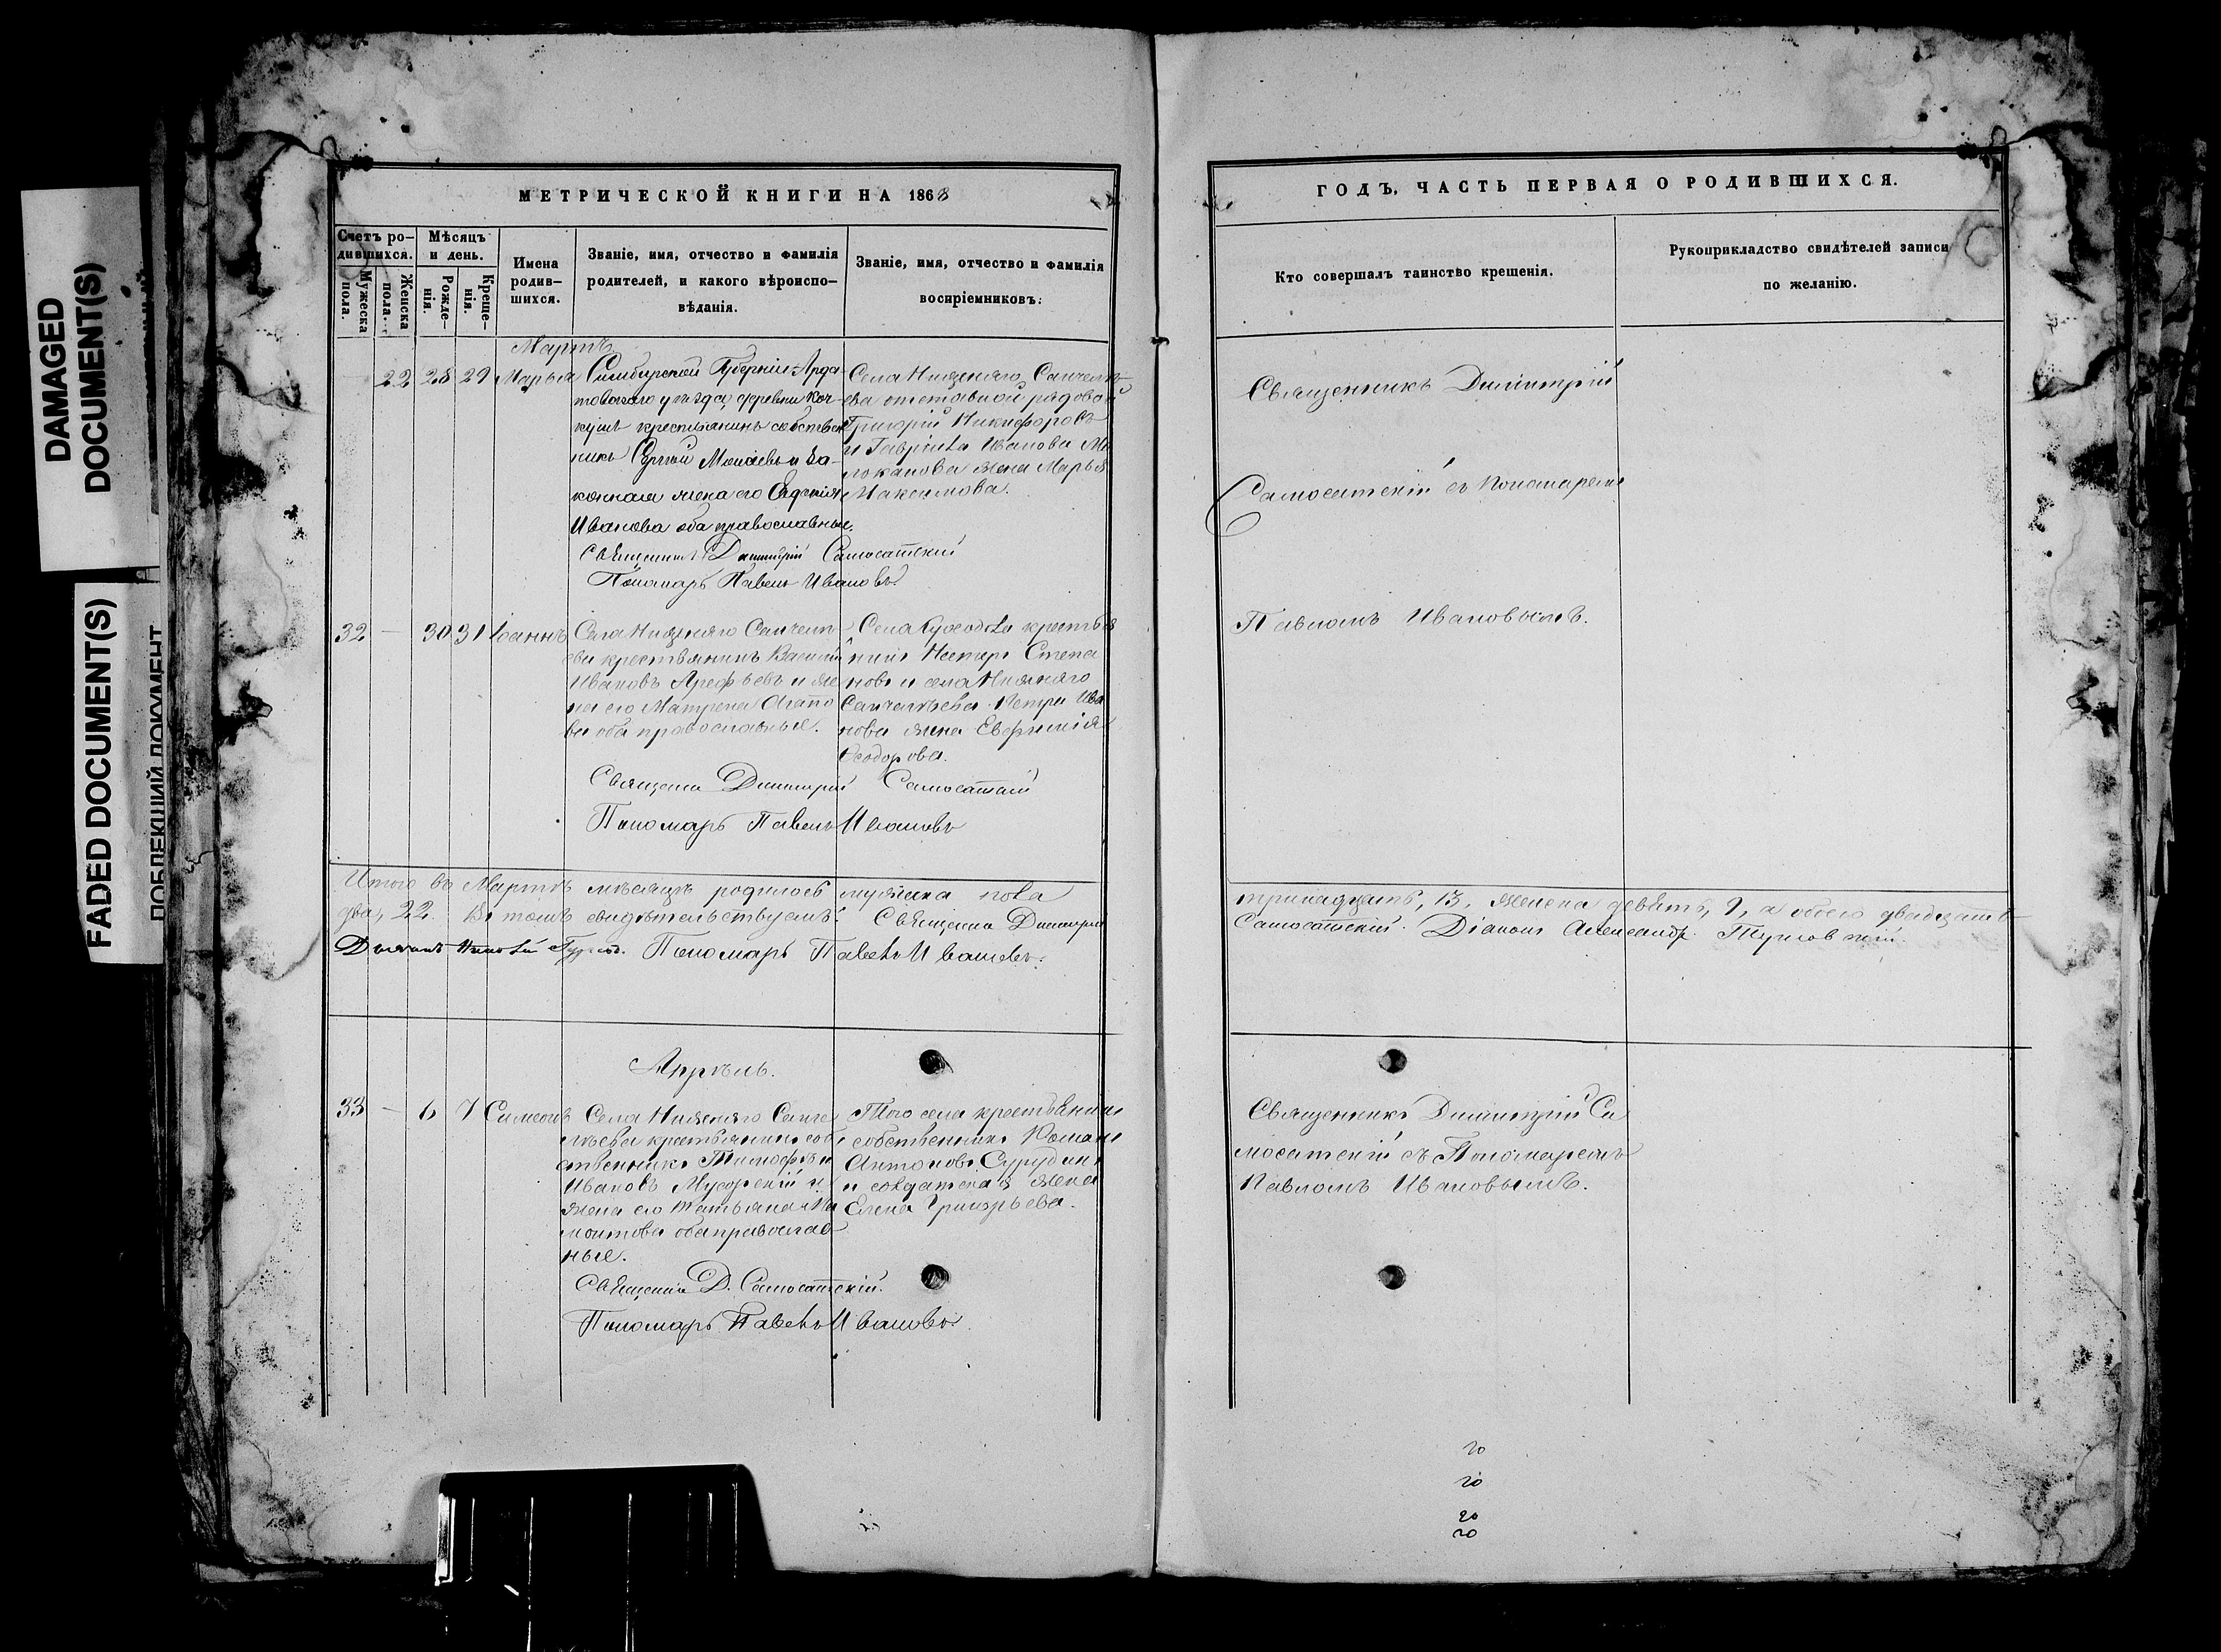 DAMAGED
DOCUMENT(S)
FADED DOCUMENT(S)
МЕТРИЧЕСКОЙ КНИГИ НА 1868
Счетъ ро-
дившихся.
Мужеска
пола.
Женска
пола.
Мѣсяцъ
и день.
Рожде-
нія.
Креще-
нія.
Имена
родив-
шихся.
Званіе, имя, отчество и фамилія
родителей, и какого вѣроиспо-
вѣданія.
Званіе, имя, отчество и фамилія
воспріемниковъ.
Мартъ
22 28 29 Марья
Симбирской Губерніи Арда-
товскаго уѣзда, деревни
крестьянинъ собствен
никъ Сергѣй Моисеевъ и за-
конная жена его Евдокія
Иванова оба православные.
Села Нижняго
ва отставной рядовой
Григорій Никифоровъ
и Гавріила Иванова
жена Марья
Максимова.
Священникъ Димитрій Самосатскій
Пономарь Павелъ Ивановъ.
32 — 30 31 Іоаннъ
Села Нижняго
ева крестьянинъ Василій
Ивановъ Арефьевъ и же
на его Матрена
ва оба православные.
Села крестья
нинъ Несторъ Степа
новъ и села Нижняго
Петра Ива
нова жена Евфимія
Ѳеодорова.
Священникъ Димитрій Самосатскій
Пономарь Павелъ Ивановъ
Итого въ Мартѣ мѣсяцѣ родилось мужеска пола
два, 22. Въ томъ свидѣтельствуемъ: Священникъ Димитрій
Пономарь Павелъ Ивановъ.
Апрѣль.
33 — 6 7 Симеонъ
Села Нижняго
крестьянинъ соб
ственникъ Тимофѣй
Ивановъ и
жена его Татьяна Ма
монтова оба православ
ные.
Того села крестьянинъ
собственникъ Романъ
Антоновъ
и солдатская жена
Елена Григорьева.
Священникъ Д. Самосатскій.
Пономарь Павелъ Ивановъ.
ГОДЪ, ЧАСТЬ ПЕРВАЯ О РОДИВШИХСЯ.
Кто совершалъ таинство крещенія.
Рукоприкладство свидѣтелей записи
по желанію.
Священникъ Димитрій
Самосатскій съ Пономаремъ
Павломъ Ивановымъ.
тринадцать, 13, женска девять, 9, а обоего двадцать
Самосатскій. Діаконъ Александръ
Священникъ Димитрій Са
мосатскій съ Пономаремъ
Павломъ Ивановымъ.
20
20
20
20